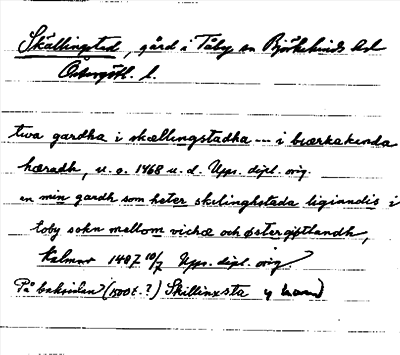 Skällingstad, gård i Tåby sn Björkekinds hd
Östergötl. l.
twa gardha i skællingstadha --- i biærkakinda
hæradh, u. o. 1468 u. d. Upps. dipl. orig.
en min gardh som heter skelinghstada liginndis i
toby sokn mellom vichæ och østergøtlandh,
Kalmar 1487 10/7 Upps. dipl. orig
På baksidan (1500t.?) Skillinxsta